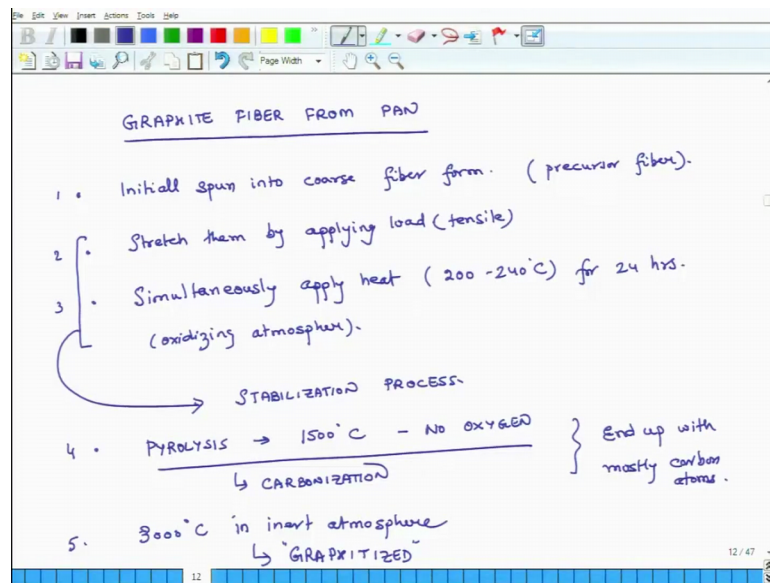 File Edit View Insert Actions Tools Help
B I
Page Width
GRAPHITE FIBER FROM PAN
1 • Initiall spun into coarse fiber form. (precursor fiber).
2 • Stretch them by applying load (tensile)
3 • Simultaneously apply heat (200-240°C) for 24 hrs.
(oxidizing atmospher).
STABILIZATION PROCESS.
4 • PYROLYSIS → 1500°C - NO OXYGEN
↳ CARBONIZATION
} End up with
mostly carbon
atoms.
5. 3000°C in inert atmosphere
↳ "GRAPHITIZED"
12 / 47
12